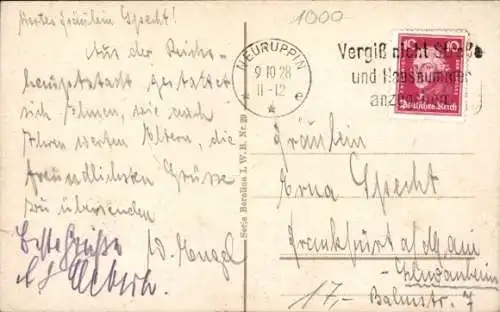 1000
Wertes Fräulein Specht!
Aus der Reichs-
hauptstadt gestattet
sich Ihnen, wie auch
Ihren werten Eltern, die
freundlichsten Grüsse
zu übersenden
Beste Grüße
NEURUPPIN
9.10.28
11-12
e
Vergiß nicht Straße
und Hausnummer
anzugeben
10 10
Deutsches Reich
Serie Berolina I. W. B. Nr. 29
Fräulein
Erna Specht
Frankfurt a/Main
17,- Balmstr. 7